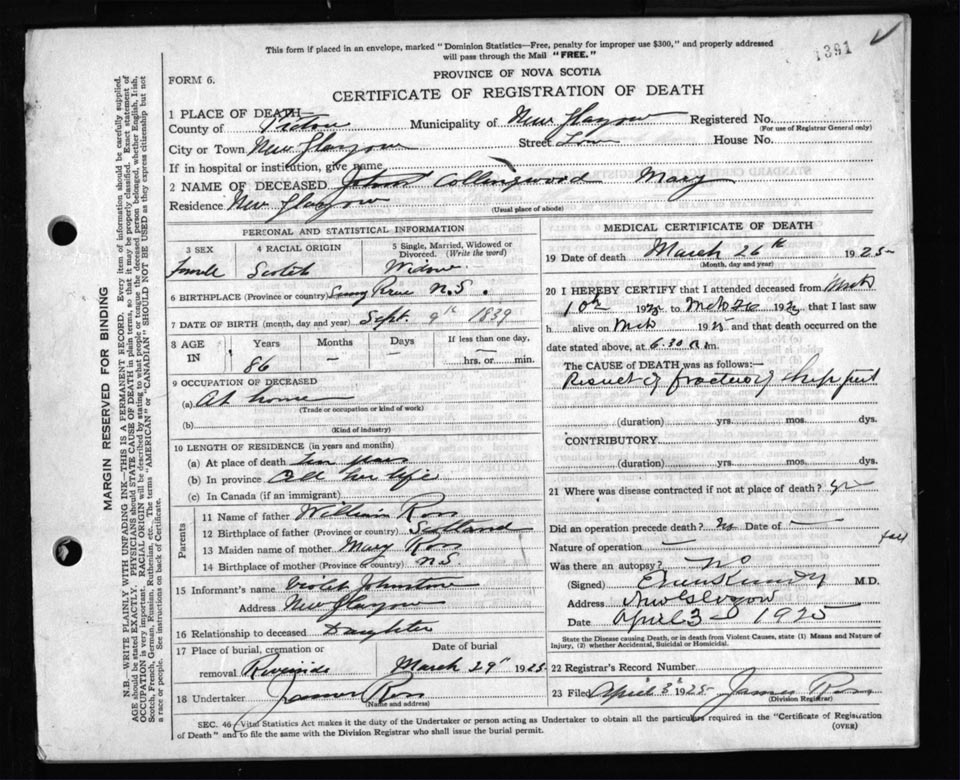 This form if placed in an envelope, marked "Dominion Statistics—Free, penalty for improper use $300," and properly addressed
will pass through the Mail "FREE."
1391
PROVINCE OF NOVA SCOTIA
FORM 6.
CERTIFICATE OF REGISTRATION OF DEATH
1 PLACE OF DEATH
County of Pictou Municipality of New Glasgow Registered No.
(For use of Registrar General only)
City or Town New Glasgow Street Town House No.
If in hospital or institution, give name
2 NAME OF DECEASED Collingwood Mary
Residence New Glasgow
(Usual place of abode)
PERSONAL AND STATISTICAL INFORMATION
3 SEX 4 RACIAL ORIGIN 5 Single, Married, Widowed or Divorced. (Write the word)
Female Scotch Widow
6 BIRTHPLACE (Province or country) N.S.
7 DATE OF BIRTH (month, day and year) Sept. 9th 1839
8 AGE IN Years Months Days If less than one day,
86 — — hrs. or min.
9 OCCUPATION OF DECEASED
(a) At home
(Trade or occupation or kind of work)
(b)
(Kind of industry)
10 LENGTH OF RESIDENCE (in years and months)
(a) At place of death Ten years
(b) In province All her life
(c) In Canada (if an immigrant)
Parents
11 Name of father William Ross
12 Birthplace of father (Province or country) Scotland
13 Maiden name of mother Mary Ross
14 Birthplace of mother (Province or country) N.S.
15 Informant's name Violet Johnstone
Address New Glasgow
16 Relationship to deceased Daughter
17 Place of burial, cremation or removal Riverside
Date of burial
March 29th 1925
18 Undertaker James Ross
(Name and address)
MEDICAL CERTIFICATE OF DEATH
19 Date of death March 26th 1925
(Month, day and year)
20 I HEREBY CERTIFY that I attended deceased from Mch
10th 1925 to Mch 26 1925 that I last saw
h alive on Mch 1925 and that death occurred on
date stated above, at 6.30 a.m.
The CAUSE of DEATH was as follows:—
Result of fracture of hip
(duration) yrs. mos. dys.
CONTRIBUTORY
(duration) yrs. mos. dys.
21 Where was disease contracted if not at place of death?
Did an operation precede death? No Date of —
Nature of operation —
fall
Was there an autopsy? No
(Signed) Kennedy M.D.
Address New Glasgow
Date April 3rd 1925
State the Disease causing Death, or in death from Violent Causes, state (1) Means and Nature of
Injury, (2) whether Accidental, Suicidal or Homicidal.
22 Registrar's Record Number
23 Filed April 3rd 1925 James Ross
(Division Registrar)
SEC. 46 (Vital Statistics Act makes it the duty of the Undertaker or person acting as Undertaker to obtain all the particulars required in the "Certificate of Registration
of Death" and to file the same with the Division Registrar who shall issue the burial permit.
(OVER)
MARGIN RESERVED FOR BINDING
N.B.—WRITE PLAINLY WITH UNFADING INK—THIS IS A PERMANENT RECORD. Every item of information should be carefully supplied.
AGE should be stated EXACTLY. PHYSICIANS should STATE CAUSE OF DEATH in plain terms, so that it may be properly classified. Exact statement of
OCCUPATION is very important. RACIAL ORIGIN will be described by stating to what people or tongue the deceased person belonged, whether English, Irish,
Scotch, French, German, Russian, Ruthenian, etc. The terms "AMERICAN" or "CANADIAN" SHOULD NOT BE USED as they express citizenship but not
a race or people. See instructions on back of Certificate.